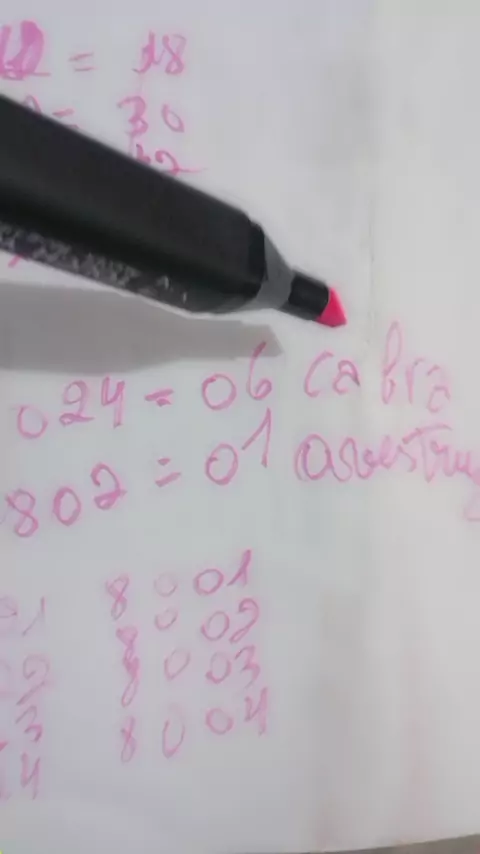 = 18
= 30
024 = 06 cabra
802 = 01 avestruz
01 8 0 01
02 8 0 02
3 8 0 03
4 8 0 04